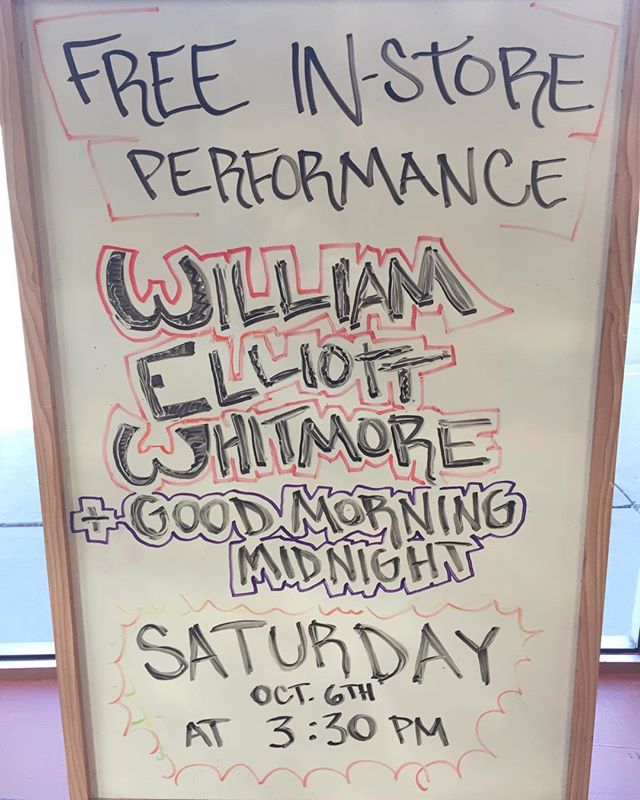 FREE IN-STORE
PERFORMANCE
WILLIAM
ELLIOTT
WHITMORE
+ GOOD MORNING
MIDNIGHT
SATURDAY
OCT. 6TH
AT 3:30 PM